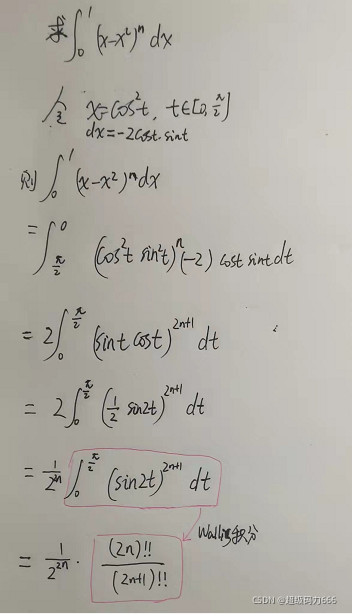 求∫₀¹(x-x²)ⁿdx
令 x=cos²t, t∈[0,π/2]
dx=-2cost·sint
则∫₀¹(x-x²)ⁿdx
=∫_{π/2}^{0}(cos²t sin²t)ⁿ(-2)cost sint dt
=2∫₀^{π/2}(sint cost)^{2n+1}dt
=2∫₀^{π/2}(1/2 sin2t)^{2n+1}dt
=1/2^{2n}∫₀^{π/2}(sin2t)^{2n+1}dt
Wallis积分
=1/2^{2n}·(2n)!!/(2n+1)!!
CSDN @超级码力666